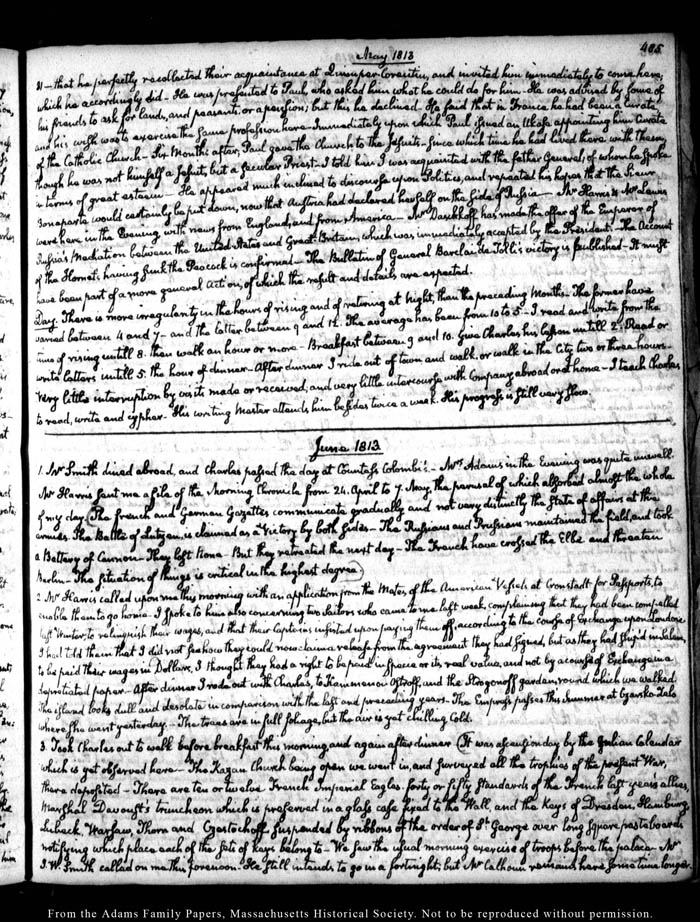 May 1813
405
31 — that he perfectly recollected their acquaintance at Quimper-Corentin, and invited him immediately to come here,
which he accordingly did — He was presented to Paul, who asked him what he could do for him — He was advised by some of
his friends to ask for lands, and peasants, or a pension; but this he declined — He said that in France he had been a Curate
and his wish was to exercise the same profession here — Immediately upon which Paul issued an Ukase appointing him Curate
of the Catholic Church — Six Months after, Paul gave the Church to the Jesuits — since which time he had lived there with them,
though he was not himself a Jesuit, but a secular Priest — I told him I was acquainted with the father General; of whom he spoke
in terms of great esteem — He appeared much inclined to discourse upon Politics, and repeated his hopes that the Sieur
Bonaparte would certainly be put down, now that Austria had declared herself on the side of Russia — Mr Harris & Mr Lewis
were here in the Evening with news from England, and from America — Mr Daschkoff has made the offer of the Emperor of
Russia's Mediation between the United States and Great-Britain, which was immediately accepted by the President. The Account
of the Hornet's having sunk the Peacock is confirmed — The Bulletin of General Barclai de Tolli's victory is published — It must
have been part of a more general action, of which the result and details are expected.
Day. There is more irregularity in the hours of rising and of retiring at Night, than the preceding Months — The former have
varied between 4 and 7 — and the latter between 9 and 12. The average has been from 10 to 5 — I read and write from the
time of rising untill 8. then walk an hour or more — Breakfast between 9 and 10. Give Charles his lesson untill 2. Read or
write letters untill 5. the hour of dinner — After dinner I ride out of town and walk, or walk in the City two or three hours —
Very little interruption by visits made or received, and very little intercourse with Company abroad or at home — I teach Charles
to read, write and cypher — His writing Master attends him besides twice a week. His progress is still very slow.
June 1813
1. Mr Smith dined abroad, and Charles passed the day at Countess Colombi's — Mrs Adams in the Evening was quite unwell
Mr Harris sent me a file of the Morning Chronicle from 24. April to 7. May, the perusal of which absorbed almost the whole
of my day. The french and German Gazettes communicate gradually and not very distinctly the State of affairs at the
armies. The Battle of Lutzen, is claimed as a Victory by both sides — The Russians and Prussians maintained the field, and took
a Battery of Cannon — They lost none — But they retreated the next day — The French have crossed the Elbe and threaten
Berlin — The situation of things is critical in the highest degree
2. Mr Harris called upon me this morning with an application from the Mates, of the American Vessels at Cronstadt for Passports, to
enable them to go home. I spoke to him also concerning two Sailors who came to me last week, complaining that they had been compelled
last Winter, to relinquish their wages, and that their Captains insisted upon paying them off, according to the course of Exchange upon London
I had told them that I did not see how they could now claim a release from the agreement they had signed, but as they had shipped in Salem,
to be paid their wages in Dollars, I thought they had a right to be paid in specie or its real value, and not by a course of Exchange in a
depreciated paper — After dinner I rode out with Charles, to Kammenoi Ostroff, and the Strogonoff garden, round which we walked
The island looks dull and desolate in comparison with the last and preceding years. The Empress passes this Summer at Czarsko-Zelo
where she went yesterday — The trees are in full foliage, but the air is yet chilling Cold.
3. Took Charles out to walk before breakfast this morning, and again after dinner. It was ascension day by the Julian Calendar
which is yet observed here — The Kazan Church being open we went in, and surveyed all the trophies of the present War,
there deposited — There are ten or twelve French Imperial Eagles — forty or fifty Standards of the French last year's allies,
Marshal Davoust's truncheon which is preserved in a glass case fixed to the Wall, and the keys of Dresden, Hamburg,
Lubeck, Warsaw, Thorn and Czestochoff suspended by ribbons of the order of St George over long square pasteboards
notifying which place each of the sets of keys belong to — We saw the usual morning exercise of troops before the palace — Mr
J. W. Smith called on me this forenoon. He still intends to go in a fortnight; but Mr Calhoun remains here some time longer.
From the Adams Family Papers, Massachusetts Historical Society. Not to be reproduced without permission.